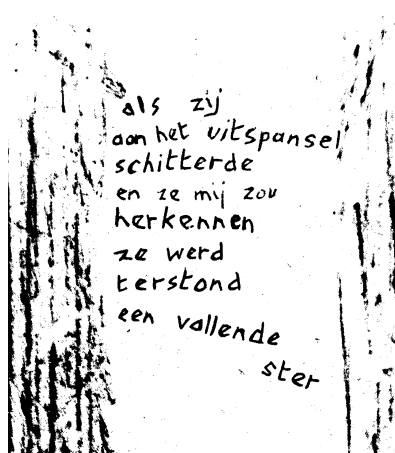 als zij
aan het uitspansel
schitterde
en ze mij zou
herkennen
ze werd
terstond
een vallende
ster